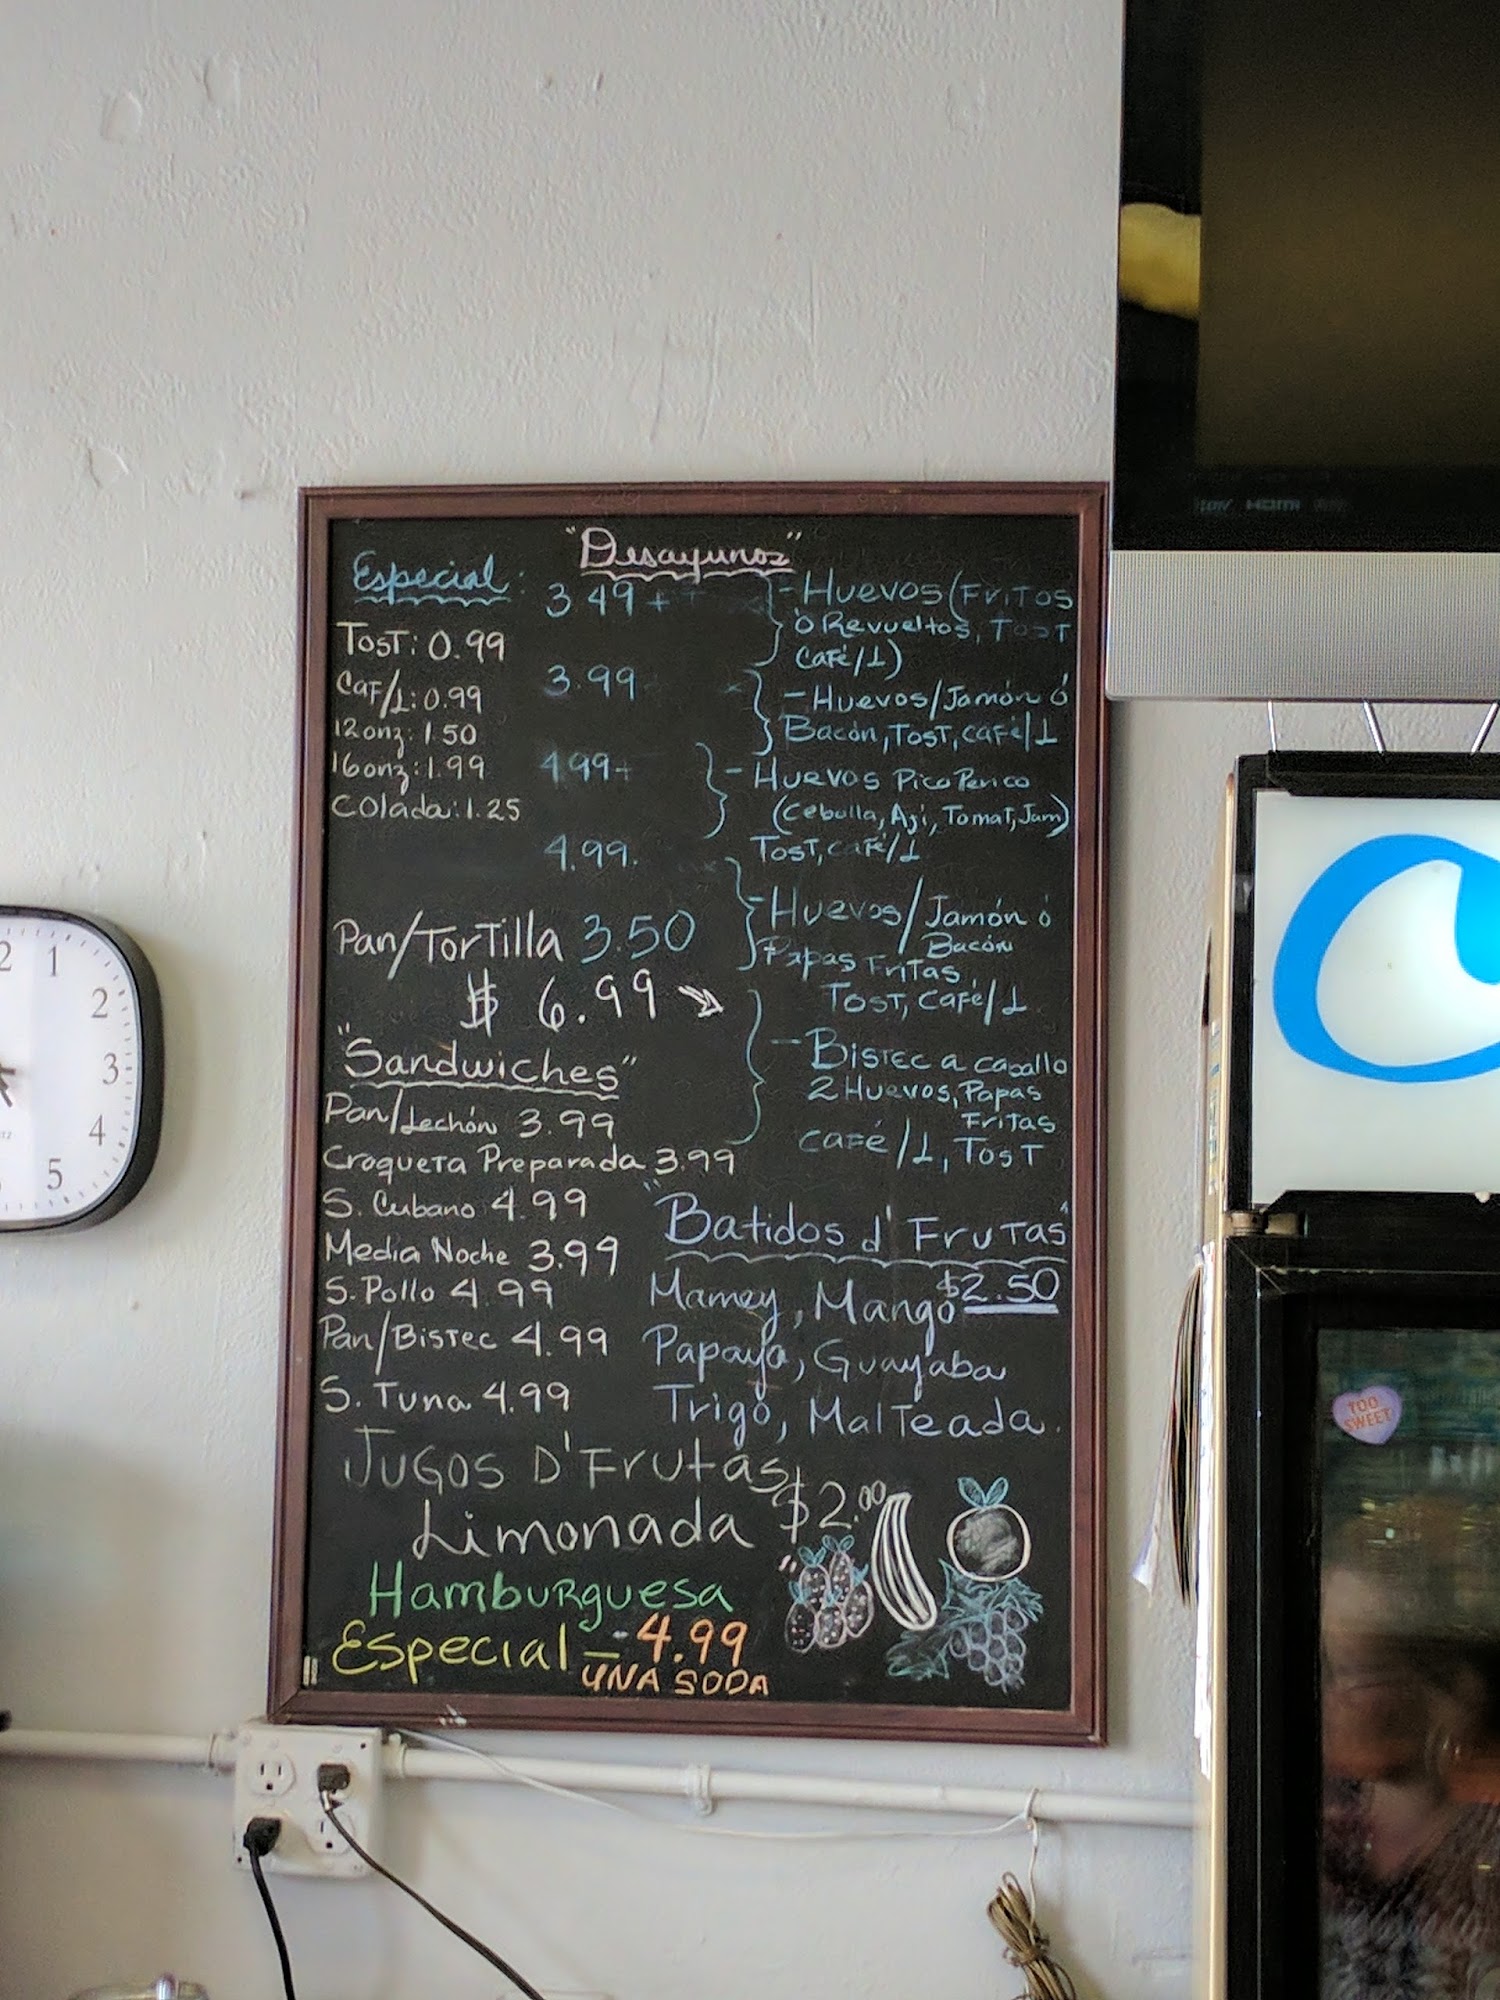 "Desayunos"
Especial:
3.49+
- Huevos (Fritos
ó Revueltos, Tost
Café/L)
Tost: 0.99
Caf/L: 0.99
12onz: 1.50
16onz: 1.99
Colada: 1.25
3.99
- Huevos/Jamón ó
Bacón, Tost, café/L
4.99+
- Huevos Pico Perico
(Cebolla, Ají, Tomat, Jam)
Tost, café/L
4.99.
- Huevos/Jamón ó
Bacón
Papas Fritas
Tost, Café/L
Pan/Tortilla 3.50
$ 6.99
- Bistec a caballo
2 Huevos, Papas
Fritas
café/L, Tost
"Sandwiches"
Pan/Lechón 3.99
Croqueta Preparada 3.99
S. Cubano 4.99
Media Noche 3.99
S. Pollo 4.99
Pan/Bistec 4.99
S. Tuna 4.99
"Batidos d' Frutas"
$2.50
Mamey, Mango
Papaya, Guayaba
Trigo, Malteada.
Jugos D'Frutas
Limonada $2.00
Hamburguesa
Especial - 4.99
UNA SODA
HDMI
TOO
SWEET
2
1
2
3
4
5